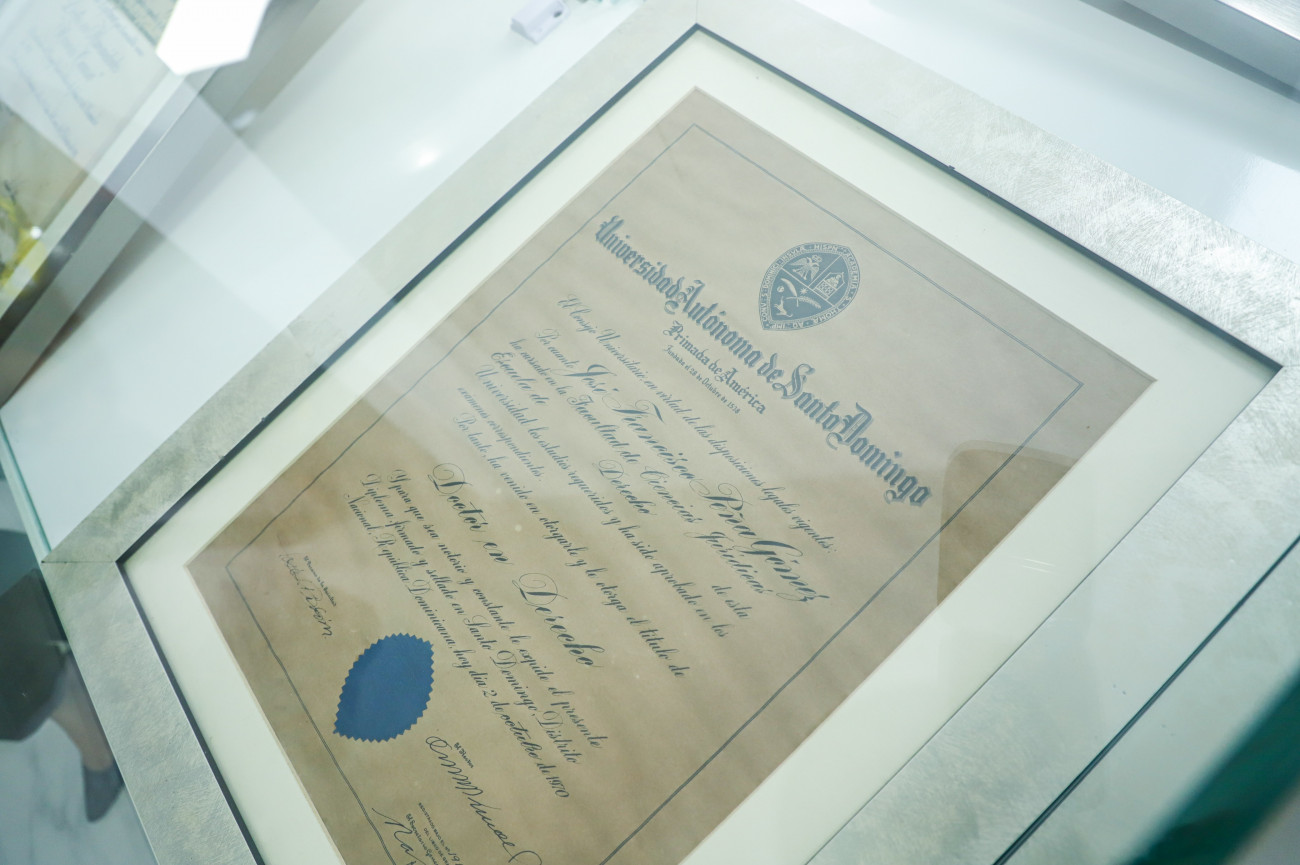 Universidad Autónoma de Santo Domingo
Primada de América
Fundada el 28 de Octubre de 1538
El Consejo Universitario en virtud de las disposiciones legales vigentes:
Por cuanto José Francisco Peña Gómez
ha cursado en la Facultad de Ciencias Jurídicas de esta
Escuela de Derecho
Universidad los estudios requeridos y ha sido aprobado en los
exámenes correspondientes.
Por tanto, ha venido en otorgarle y le otorga el título de
Doctor en Derecho
Y para que sea notorio y constante le expide el presente
Diploma firmado y sellado en Santo Domingo, Distrito
Nacional, República Dominicana, hoy día 2 de octubre de 1970
El Rector